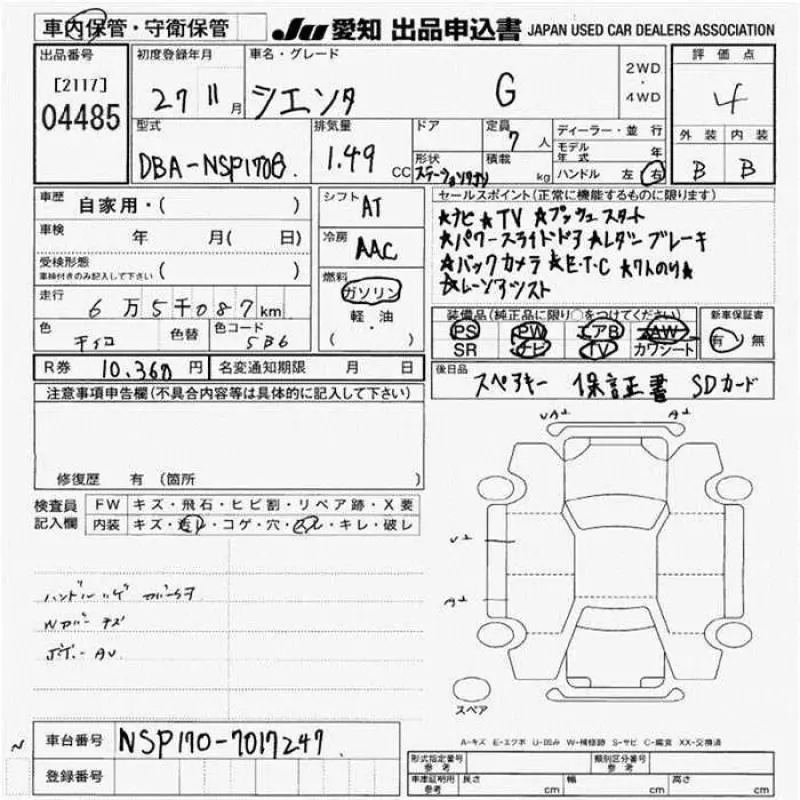 車内保管・守衛保管
JU 愛知 出品申込書 JAPAN USED CAR DEALERS ASSOCIATION
出品番号
[2117]
04485
初度登録年月
27 11 月
車名・グレード
シエンタ G
2WD
・
4WD
評価点
4
外装 内装
B B
型式
DBA-NSP170G
排気量
1.49 CC
ドア
定員
7 人
形状
ステーションワゴン
積載
kg
ディーラー・並 行
モデル年式 年
ハンドル 左 右
車歴
自家用・( )
車検
年 月( 日)
受検形態
車検付きのみ記入して下さい ( )
走行
6万5千087km
色
チャイロ
色替
色コード
5B6
シフト
AT
冷房
AAC
燃料
ガソリン
軽・油
( ・ )
セールスポイント(正常に機能するものに限ります)
★ナビ★TV ★プッシュスタート
★パワースライドドア★レダーブレーキ
★バックカメラ★E・T・C ★7人のり★
★レーンアシスト
装備品(純正品に限り○をつけてください)
PS PW エアB AW
SR ナビ TV カワシート
新車保証書
有 無
R券 10.360 円 名変通知期限 月 日
後日品
スペアキー 保証書 SDカード
注意事項申告欄(不具合内容等は具体的に記入して下さい)
修復歴 有(箇所 )
検査員記入欄
FW キズ・飛石・ヒビ割・リペア跡・X要
内装 キズ・汚レ・コゲ・穴・スレ・キレ・破レ
ハンドルハゲ
スペア
A-キズ E-エクボ U-凹み W-補修跡 S-サビ C-腐食 XX-交換済
車台番号 NSP170-7017247
登録番号
形式指定番号
参考
類別区分番号
参考
車庫証明用
参考
長さ cm 幅 cm 高さ cm